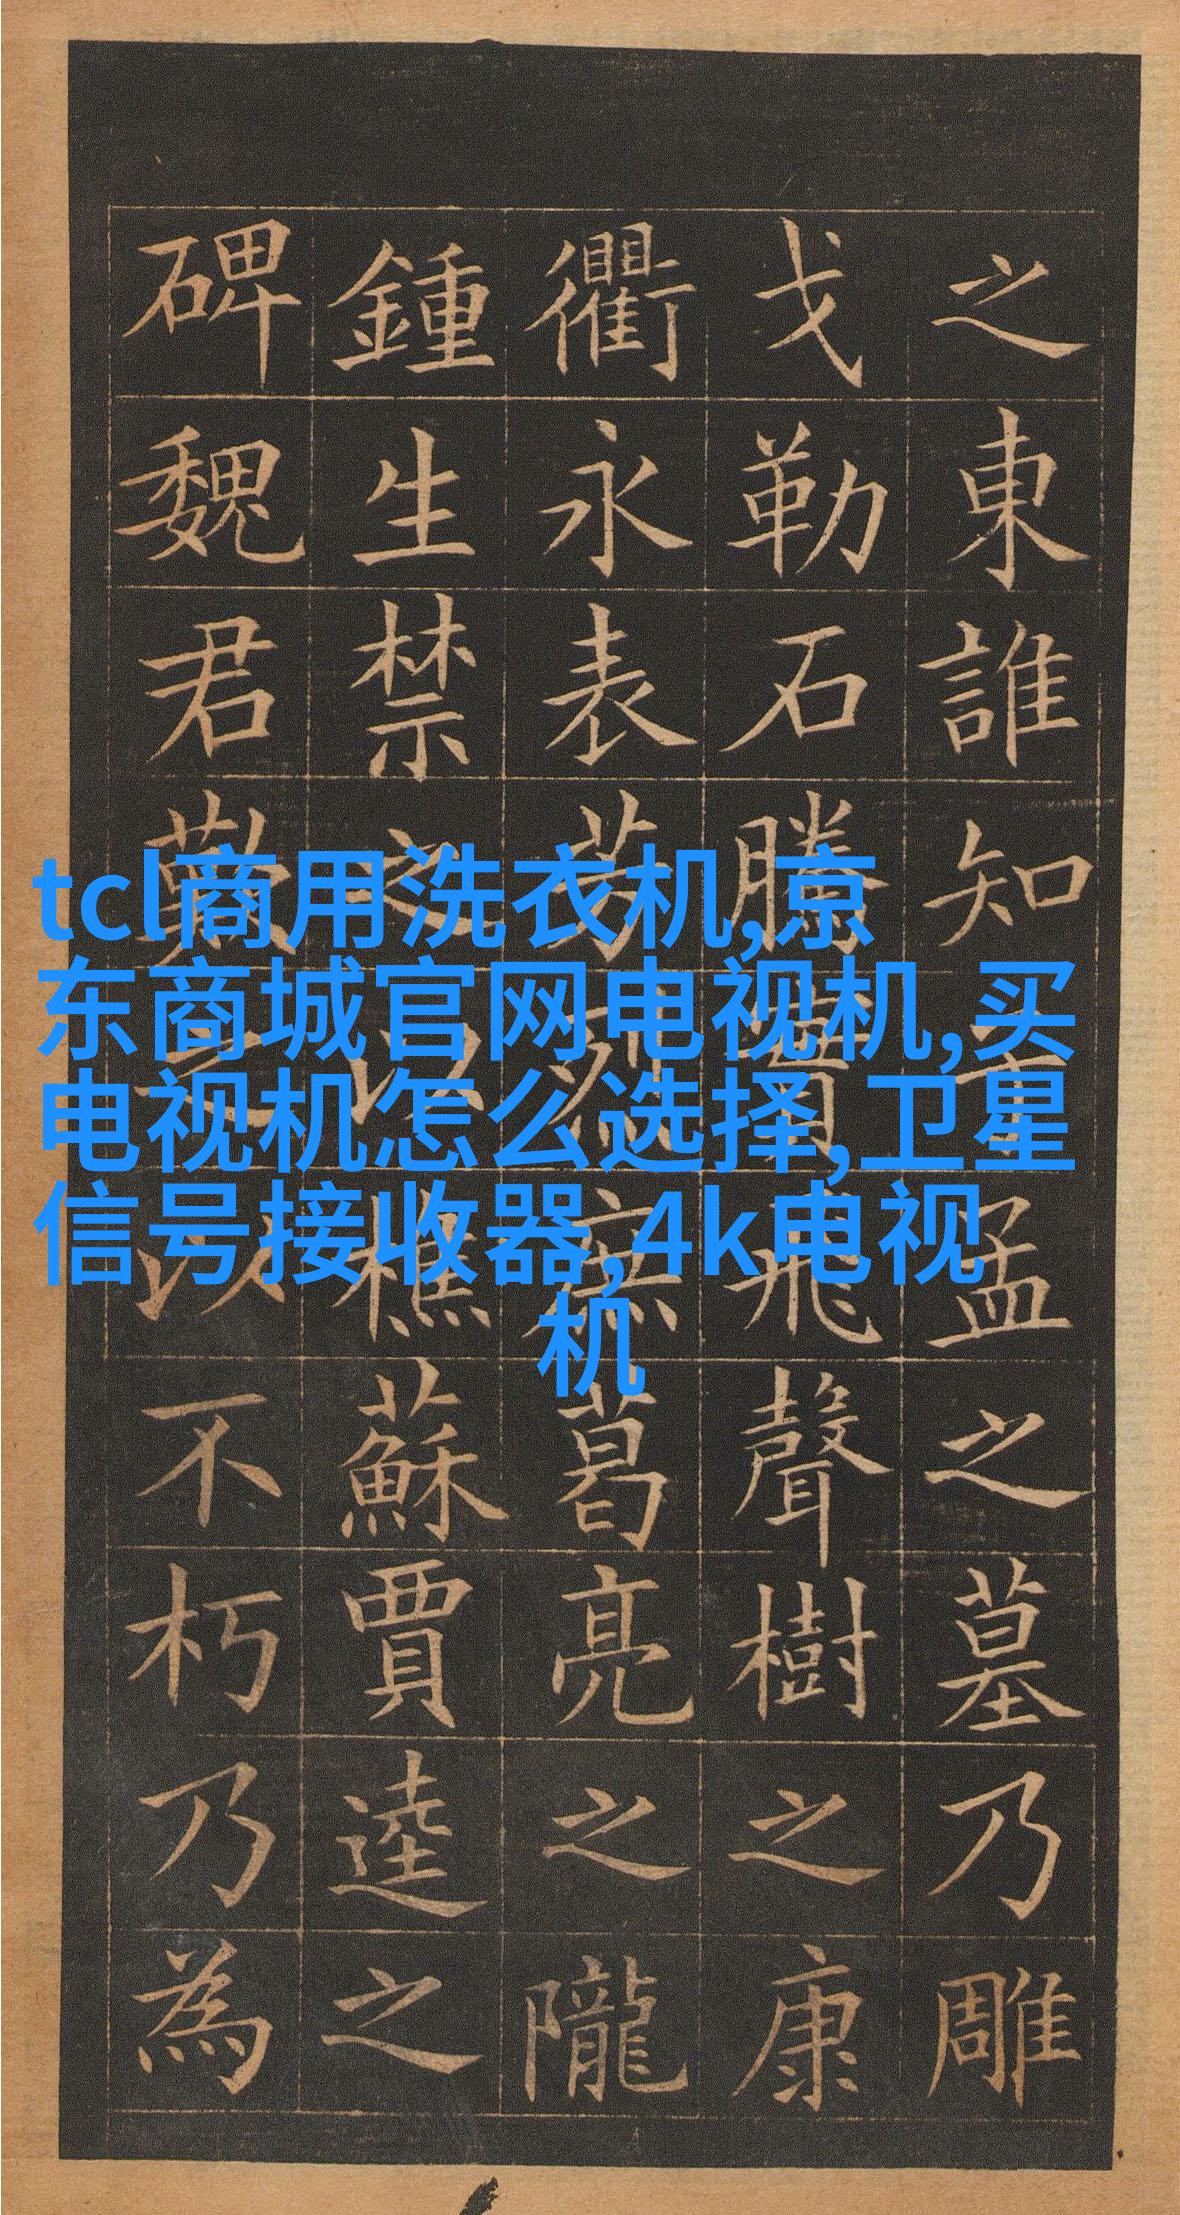 tcl商用洗衣机,京
东商城官网电视机,买
电视机怎么选择,卫星
信号接收器,4k电视
机
之東誰知孟之墓乃雕
戈勒石騰實飛聲樹之康
衢永表芳烈庶葛亮之隴
鍾生禁之以樵蘇賈逵之
碑魏君之以不朽乃為